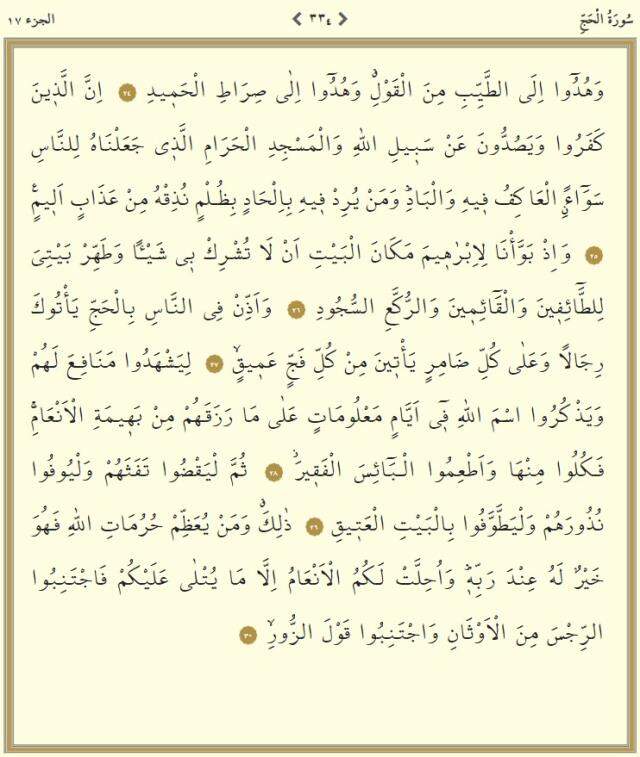 سُورَةُ الْحَجِّ ٣٣٤ الجزء ١٧
وَهُدُٓوا اِلَى الطَّيِّبِ مِنَ الْقَوْلِۚ وَهُدُٓوا اِلٰى صِرَاطِ الْحَمٖيدِ ٢٤ اِنَّ الَّذٖينَ
كَفَرُوا وَيَصُدُّونَ عَنْ سَبٖيلِ اللّٰهِ وَالْمَسْجِدِ الْحَرَامِ الَّذٖى جَعَلْنَاهُ لِلنَّاسِ
سَوَٓاءًۨ الْعَاكِفُ فٖيهِ وَالْبَادِؕ وَمَنْ يُرِدْ فٖيهِ بِاِلْحَادٍ بِظُلْمٍ نُذِقْهُ مِنْ عَذَابٍ اَلٖيمٍࣖ
٢٥ وَاِذْ بَوَّأْنَا لِاِبْرٰهٖيمَ مَكَانَ الْبَيْتِ اَنْ لَا تُشْرِكْ بٖى شَيْـًٔا وَطَهِّرْ بَيْتِىَ
لِلطَّٓائِفٖينَ وَالْقَٓائِمٖينَ وَالرُّكَّعِ السُّجُودِ ٢٦ وَاَذِّنْ فِى النَّاسِ بِالْحَجِّ يَأْتُوكَ
رِجَالًا وَعَلٰى كُلِّ ضَامِرٍ يَأْتٖينَ مِنْ كُلِّ فَجٍّ عَمٖيقٍۙ ٢٧ لِيَشْهَدُوا مَنَافِعَ لَهُمْ
وَيَذْكُرُوا اسْمَ اللّٰهِ فٖٓى اَيَّامٍ مَعْلُومَاتٍ عَلٰى مَا رَزَقَهُمْ مِنْ بَهٖيمَةِ الْاَنْعَامِۚ
فَكُلُوا مِنْهَا وَاَطْعِمُوا الْبَٓائِسَ الْفَقٖيرَؗ ٢٨ ثُمَّ لْيَقْضُوا تَفَثَهُمْ وَلْيُوفُوا
نُذُورَهُمْ وَلْيَطَّوَّفُوا بِالْبَيْتِ الْعَتٖيقِ ٢٩ ذٰلِكَۗ وَمَنْ يُعَظِّمْ حُرُمَاتِ اللّٰهِ فَهُوَ
خَيْرٌ لَهُ عِنْدَ رَبِّهٖؕ وَاُحِلَّتْ لَكُمُ الْاَنْعَامُ اِلَّا مَا يُتْلٰى عَلَيْكُمْ فَاجْتَنِبُوا
الرِّجْسَ مِنَ الْاَوْثَانِ وَاجْتَنِبُوا قَوْلَ الزُّورِۙ ٣٠